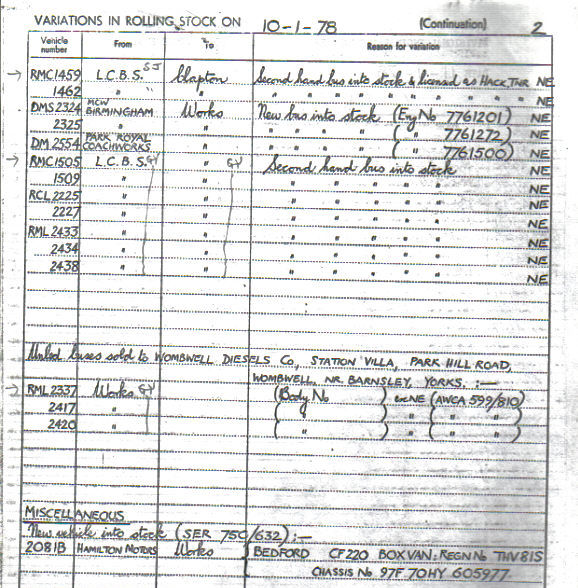 VARIATIONS IN ROLLING STOCK ON 10-1-78 (Continuation) 2
Vehicle number From To Reason for variation
→ RMC1459 L.C.B.S. SJ Clapton Second hand bus into stock & licensed as HACK TNR NE
1462 " " " " " " " " " " " NE
DMS2324 MCW BIRMINGHAM Works New bus into stock (Eng No 7761201) NE
2325 " " " " " " ( " 7761272) NE
DM 2554 PARK ROYAL COACHWORKS " " " " " ( " 7761500) NE
→ RMC1505 L.C.B.S. GY " GY Second hand bus into stock NE
1509 " " " " " " " NE
RCL2225 " " " " " " " NE
2227 " " " " " " " NE
RML2433 " " " " " " " NE
2434 " " " " " " " NE
2438 " " " " " " " NE
buses sold to WOMBWELL DIESELS Co, STATION VILLA, PARK HILL ROAD,
WOMBWELL, NR. BARNSLEY, YORKS. :—
→ RML2337 Works GY (Body No ) NE (AWCA 599/810)
2417 " ( " ) " ( " " )
2420 " ( " ) " ( " " )
MISCELLANEOUS
New vehicle into stock (SER 75C/632) :—
2081B HAMILTON MOTORS Works BEDFORD CF220 BOXVAN: REGN No THV81S
CHASSIS No 97F 70HY 605977